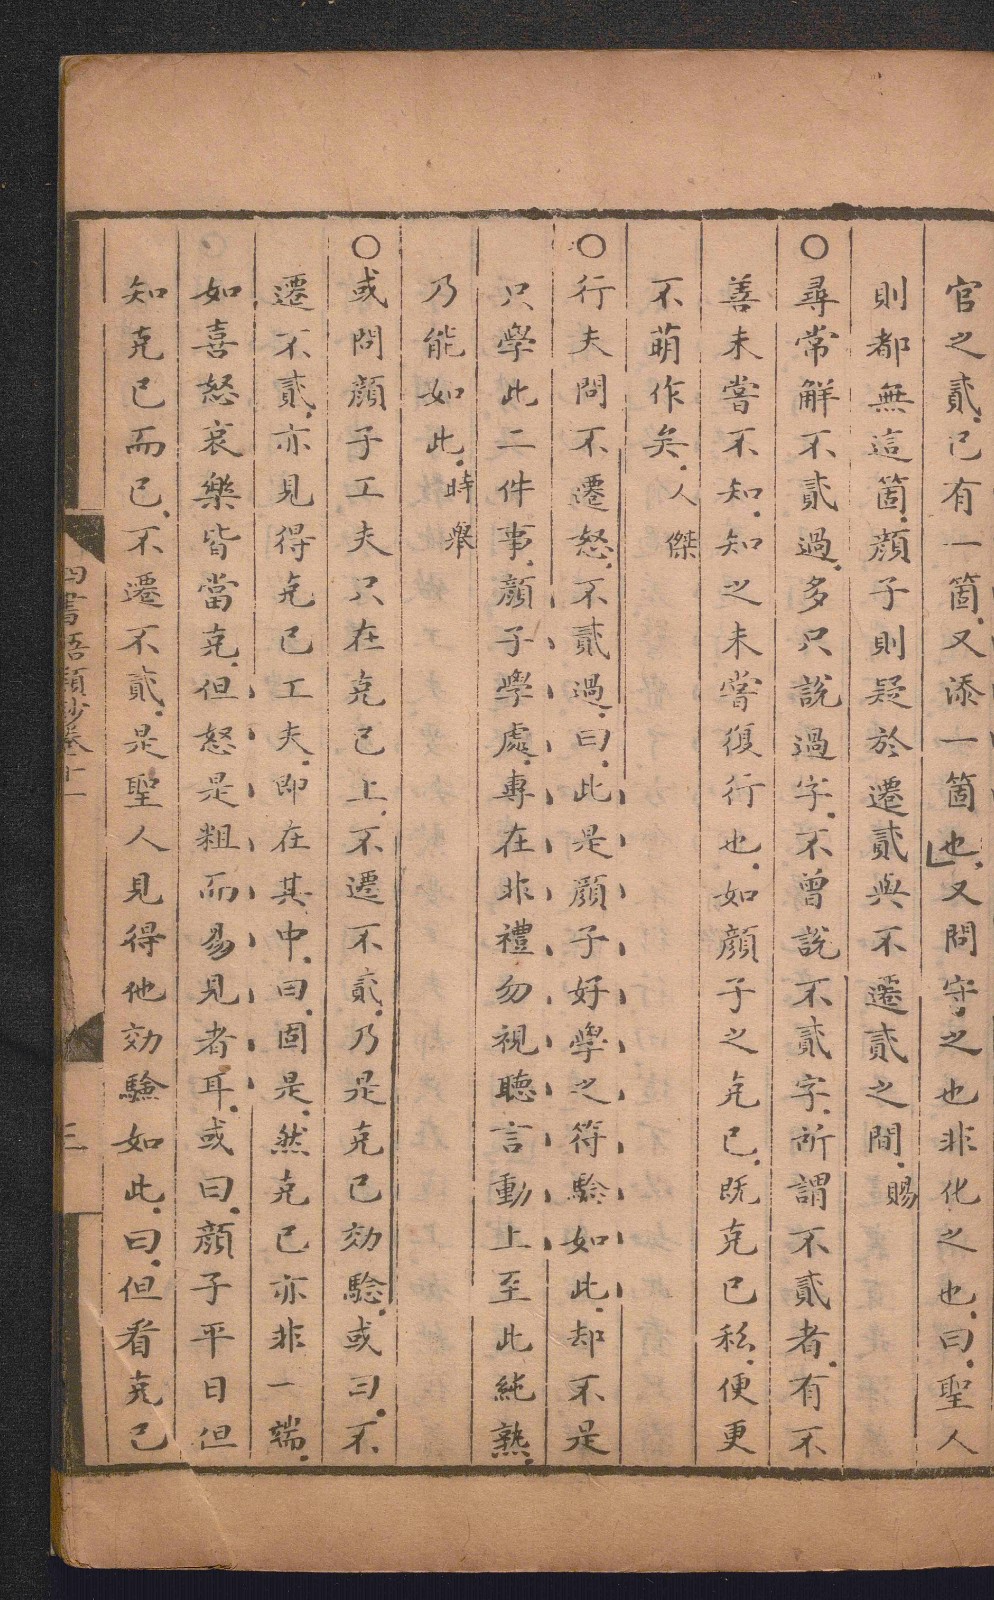 官之貳已有一箇又添一箇也又問守之也非化之也曰聖人
則都無這箇顏子則疑於遷貳與不遷貳之間賜
○尋常解不貳過多只說過字不曾說不貳字所謂不貳者有不
善未嘗不知知之未嘗復行也如顏子之克已既克已私便更
不萌作矣人傑
○行夫問不遷怒不貳過曰此是顏子好學之符驗如此却不是
只學此二件事顏子學處專在非禮勿視聽言動上至此純熟
乃能如此時舉
○或問顏子工夫只在克已上不遷不貳乃是克已効驗或曰不
遷不貳亦見得克已工夫即在其中曰固是然克已亦非一端
如喜怒哀樂皆當克但怒是粗而易見者耳或曰顏子平日但
知克已而已不遷不貳是聖人見得他効驗如此曰但看克已
四書語類抄卷二十一
三